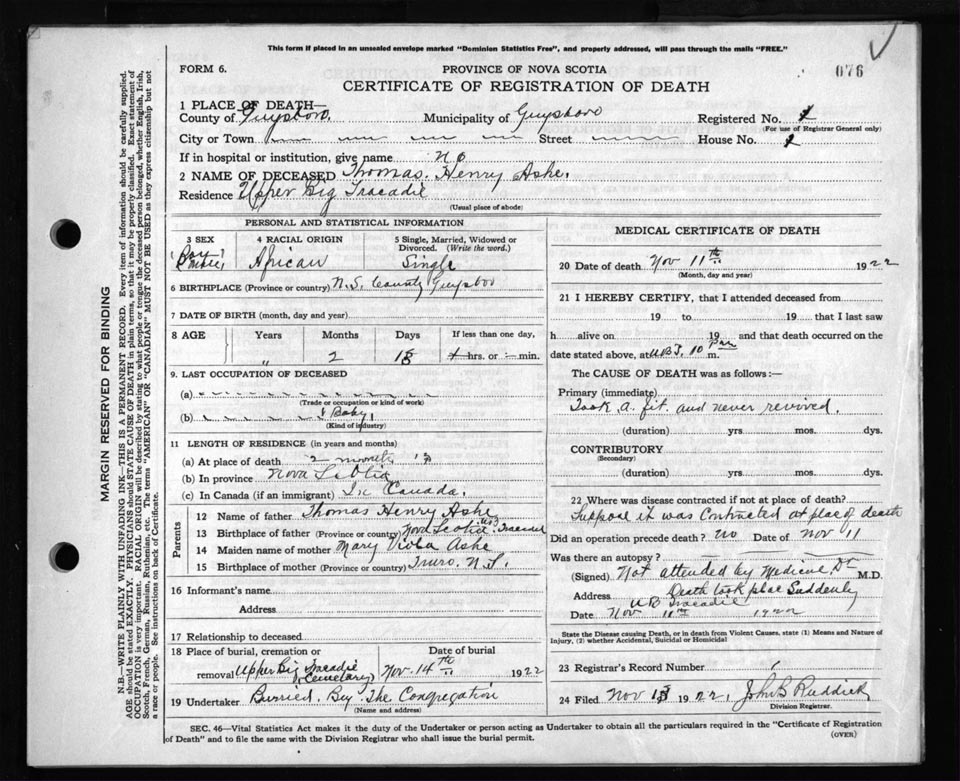 This form if placed in an unsealed envelope marked "Dominion Statistics Free", and properly addressed, will pass through the mails "FREE."
076
FORM 6.
PROVINCE OF NOVA SCOTIA
CERTIFICATE OF REGISTRATION OF DEATH
1 PLACE OF DEATH—
County of Guysboro. Municipality of Guysboro Registered No. 1
(For use of Registrar General only)
City or Town Street House No. 1
If in hospital or institution, give name No
2 NAME OF DECEASED Thomas. Henry Ashe.
Residence Upper Big Tracadie
(Usual place of abode)
PERSONAL AND STATISTICAL INFORMATION
3 SEX
4 RACIAL ORIGIN
5 Single, Married, Widowed or Divorced. (Write the word.)
African
Single
6 BIRTHPLACE (Province or country) N.S. County Guysboro
7 DATE OF BIRTH (month, day and year)
8 AGE Years Months Days If less than one day,
" 2 hrs. or min.
9. LAST OCCUPATION OF DECEASED
(a)
(Trade or occupation or kind of work)
(b) Baby,
(Kind of industry)
11 LENGTH OF RESIDENCE (in years and months)
(a) At place of death 2 months
(b) In province Nova Scotia
(c) In Canada (if an immigrant) In Canada.
Parents
12 Name of father Thomas Henry Ashe
13 Birthplace of father (Province or country) Nova Scotia UB Tracadie
14 Maiden name of mother Mary Viola Ashe
15 Birthplace of mother (Province or country) Truro. N.S.
16 Informant's name
Address
17 Relationship to deceased
18 Place of burial, cremation or removal Upper Big Tracadie Cemetary
Date of burial
Nov. 14th 1922
19 Undertaker Burried. By The Congregation
(Name and address)
MEDICAL CERTIFICATE OF DEATH
20 Date of death Nov 11th 1922
(Month, day and year)
21 I HEREBY CERTIFY, that I attended deceased from
19 to 19 that I last saw
h alive on 19 and that death occurred on the
date stated above, at U.B.T. 10 Pm m.
The CAUSE OF DEATH was as follows:—
Primary (immediate)
Took a. fit. and never revived.
(duration) yrs. mos. dys.
CONTRIBUTORY
(Secondary)
(duration) yrs. mos. dys.
22 Where was disease contracted if not at place of death?
Suppose it was Contracted at place of death
Did an operation precede death? no Date of Nov 11
Was there an autopsy?
(Signed) Not attended by Medicine Dr M.D.
Address Death took place Suddenly
UB Tracadie
Date Nov 11th 1922
State the Disease causing Death, or in death from Violent Causes, state (1) Means and Nature of Injury, (2) whether Accidental, Suicidal or Homicidal
23 Registrar's Record Number
24 Filed Nov 1922, John B Ruddick
Division Registrar.
SEC. 46—Vital Statistics Act makes it the duty of the Undertaker or person acting as Undertaker to obtain all the particulars required in the "Certificate of Registration
of Death" and to file the same with the Division Registrar who shall issue the burial permit.
(OVER)
MARGIN RESERVED FOR BINDING
N.B.—WRITE PLAINLY WITH UNFADING INK—THIS IS A PERMANENT RECORD. Every item of information should be carefully supplied.
AGE should be stated EXACTLY. PHYSICIANS should STATE CAUSE OF DEATH in plain terms, so that it may be properly classified. Exact statement of
OCCUPATION is very important. RACIAL ORIGIN will be described by stating to what people or tongue the deceased person belonged, whether English, Irish,
Scotch, French, German, Russian, Ruthenian, etc. The terms "AMERICAN" OR "CANADIAN" MUST NOT BE USED as they express citizenship but not
a race or people. See instructions on back of Certificate.